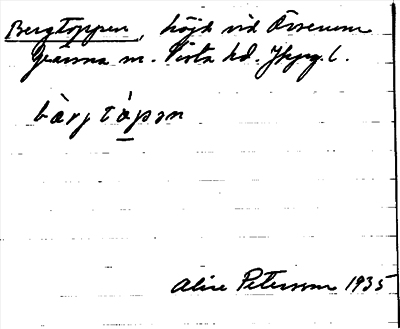 Bergtoppen, höjd vid Örserum
Gränna sn. Vista hd. Jkpg. l.
bàrjtàpən
Alice Petersson 1935